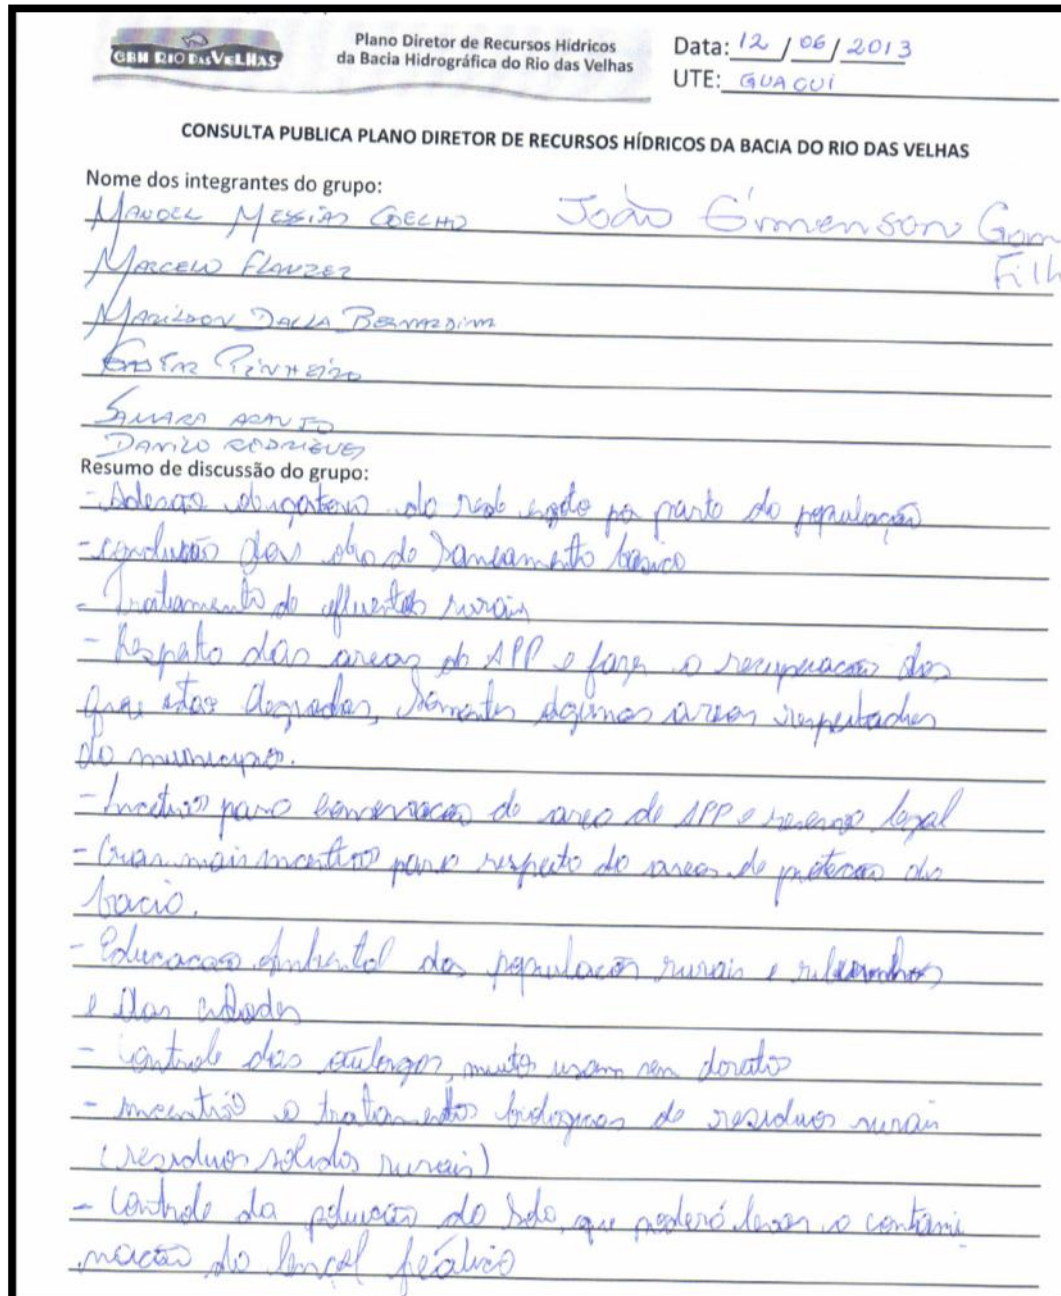 CBH RIO DAS VELHAS
Plano Diretor de Recursos Hídricos
da Bacia Hidrográfica do Rio das Velhas
Data: 12 / 06 / 2013
UTE: GUAGUI
CONSULTA PUBLICA PLANO DIRETOR DE RECURSOS HÍDRICOS DA BACIA DO RIO DAS VELHAS
Nome dos integrantes do grupo:
MANOEL MESSIAS COELHO João Ermenson Gom
Filh
MARCELO FLANZER
DALLA BERNARDINA
PINHEIRO
SAMARA ARAUJO
DANILO RODRIGUES
Resumo de discussão do grupo:
- Adesao do rede por parte do população
- do Saneamento basico
- Tratamento de efluentes rurais
- Respeito das areas de APP e fazer a recuperacao das
que estao degradas, somente algumas areas respeitadas
do municipio.
- para conservacao de area de APP e reserva legal
- Criar mais incentivo para respeito de areas de protecao da
bacia.
- Educacao Ambiental das populacos rurais e
e das cidades
- Controle das muitos usam sem
- incentivo a de residuos rurais
(residuos solidos rurais)
- Controle da poluicao do Solo, que poderá levar a contami
nacao do lencol freático